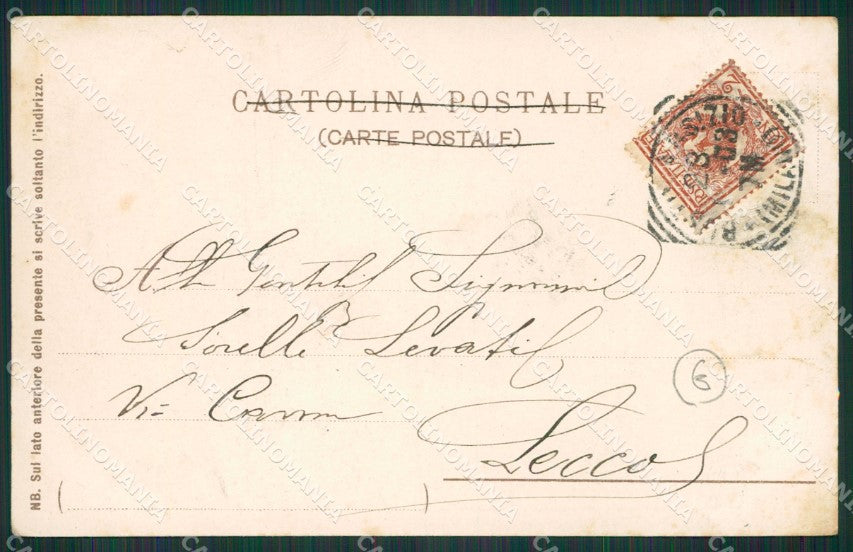 CARTOLINA POSTALE
(CARTE POSTALE)
NB. Sul lato anteriore della presente si scrive soltanto l'indirizzo.
(MILANO)
Gentili Signorine
Sorelle Levati
Via
Lecco
6
CARTOLINOMANIA